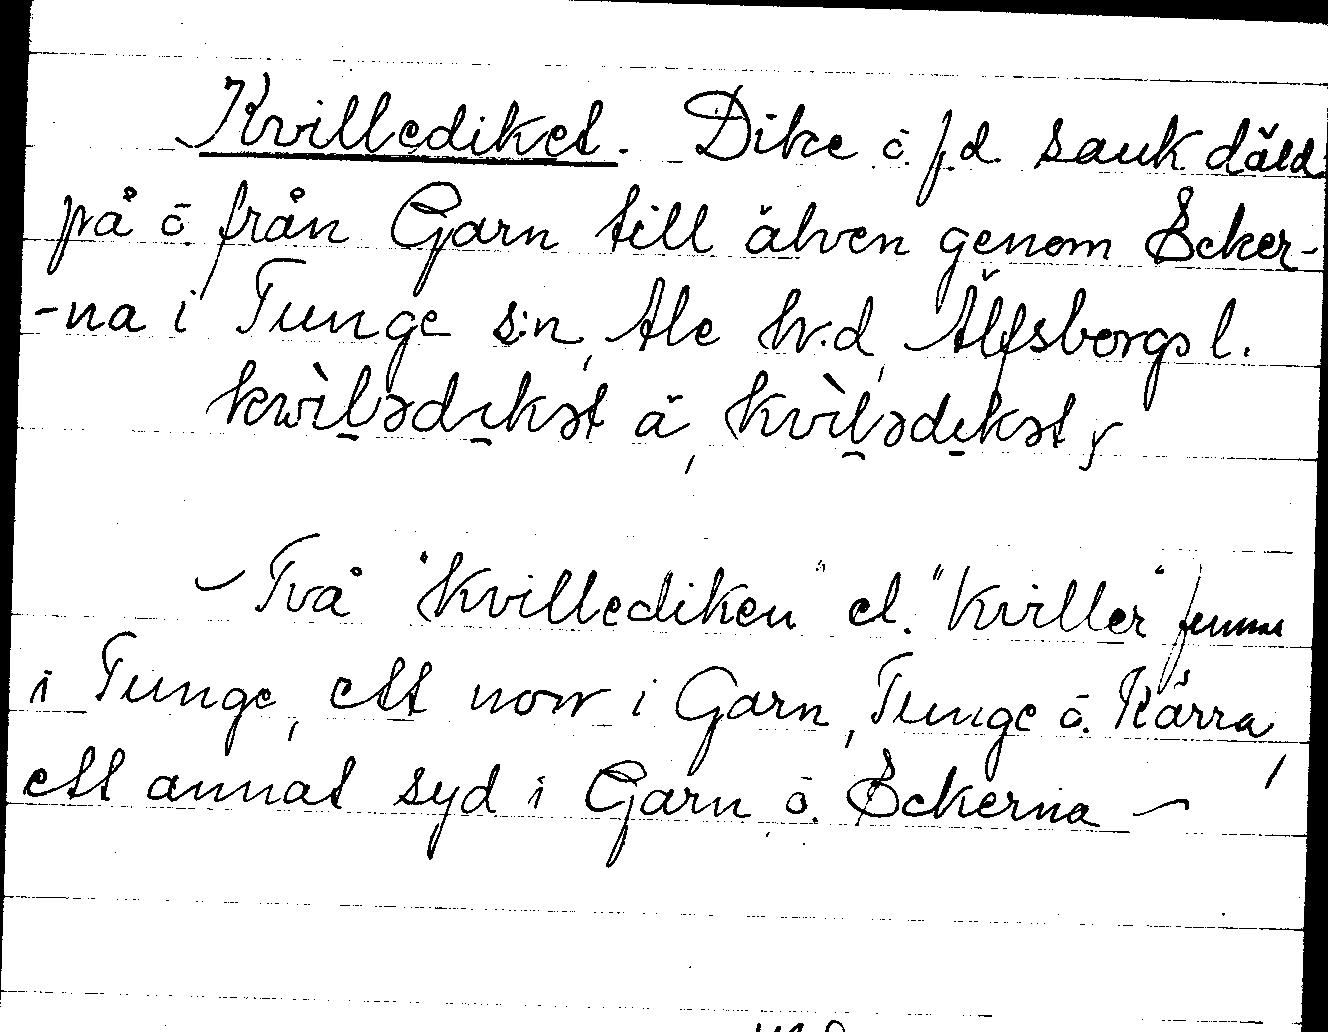 Kvillediket. Dike o. f.d. sank däld
på o. från Garn till älven genom Ecker-
-na i Tunge s:n, Ale h.d, Älfsborgs l.
kwìləd̲ıkət ä, kvìləd̲ıkət,
– Två "Kvillediken" el. "Kviller" finnas
i Tunge, ett norr i Garn, Tunge o. Kärra,
ett annat syd i Garn o. Eckerna –